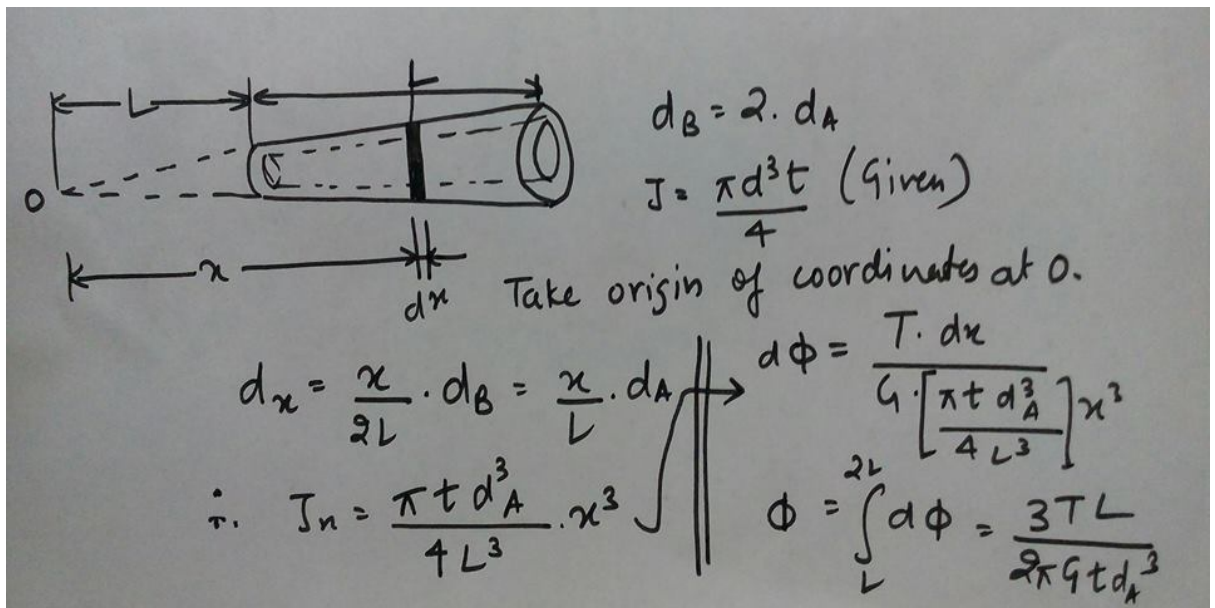 L
L
O
x
dx
d_B = 2. d_A
J = πd³t/4 (Given)
Take origin of coordinates at O.
d_x = x/2L . d_B = x/L . d_A
∴ J_x = π t d_A³/4L³ . x³
dϕ = T. dx / G.[π t d_A³/4L³] x³
ϕ = ∫_L^{2L} dϕ = 3TL/2πGtd_A³